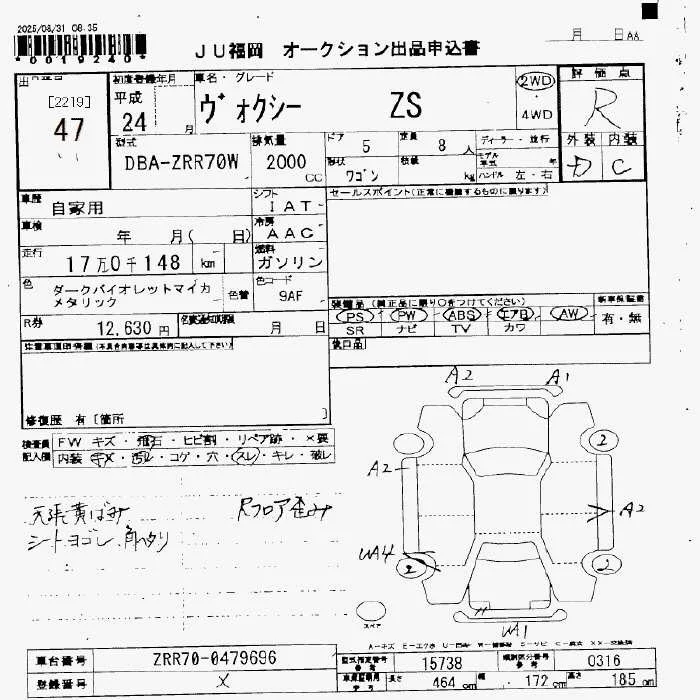 2025/08/31 08:35
*0019240*
JU福岡 オークション出品申込書
月 日AA
[2219]
47
初度登録年月
平成
24 月
車名・グレード
ヴォクシー ZS
2WD
4WD
評価点
R
外装 内装
D C
型式
DBA-ZRR70W
排気量
2000 CC
ドア 5
定員 8 人
形状 ワゴン
積載 kg
ディーラー・並行
モデル年式 年
ハンドル 左・右
車歴
自家用
シフト
IAT
セールスポイント(正常に機能するものに限ります)
車検
年 月( 日)
冷房
AAC
走行
17万0千148 km
燃料
ガソリン
色
ダークバイオレットマイカメタリック
色替
色コード
9AF
装備品 (純正品に限り○をつけてください)
新車保証書
PS PW ABS エアB AW
有・無
SR ナビ TV カワ
R券
12,630 円
名変通知期限
月 日
後日品
注意事項申告欄(不具合内容等は具体的に記入して下さい)
修復歴 有 [箇所 ]
検査員記入欄
FW キズ・飛石・ヒビ割・リペア跡・×要
内装 キズ・汚レ・コゲ・穴・スレ・キレ・破レ
天張黄ばみ Rフロア歪み
シートヨゴレ、角ヘタリ
A2 A1
2
A2
A2
WA4
2 2
スペア
WA1
車台番号
ZRR70-0479696
登録番号
×
型式指定番号
参考
15738
類別区分番号
参考
0316
長さ 464 cm
幅 172 cm
高さ 185 cm